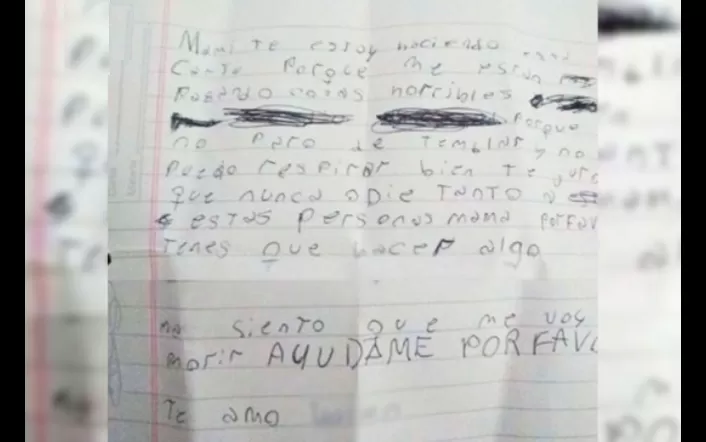 Mami te estoy haciendo esta
Carta Porque me están
Pasando cosas horribles
Porque
no Paro de Temblar y no
Puedo respirar bien Te juro
que nunca odie TANTO a
estas personas mama PorFav
Tenes que hacer algo
siento que me voy
morir AYUDAME POR FAV
Te amo